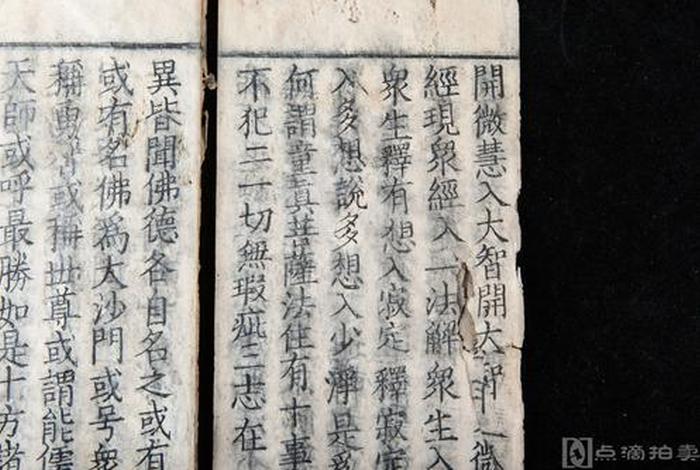 開微慧入大智開大智入微
經現衆經入一法解衆生入
衆生釋有想入寂定釋寂定
入多想說多想入少淨是爲
何謂童真菩薩法住有十事
不犯二一切無瑕疵三志在
異皆聞佛德各自名之或有
或有名佛爲大沙門或号衆
稱勇智或稱世尊或謂能儒
天師或呼最勝如是十方諸
点滴拍卖